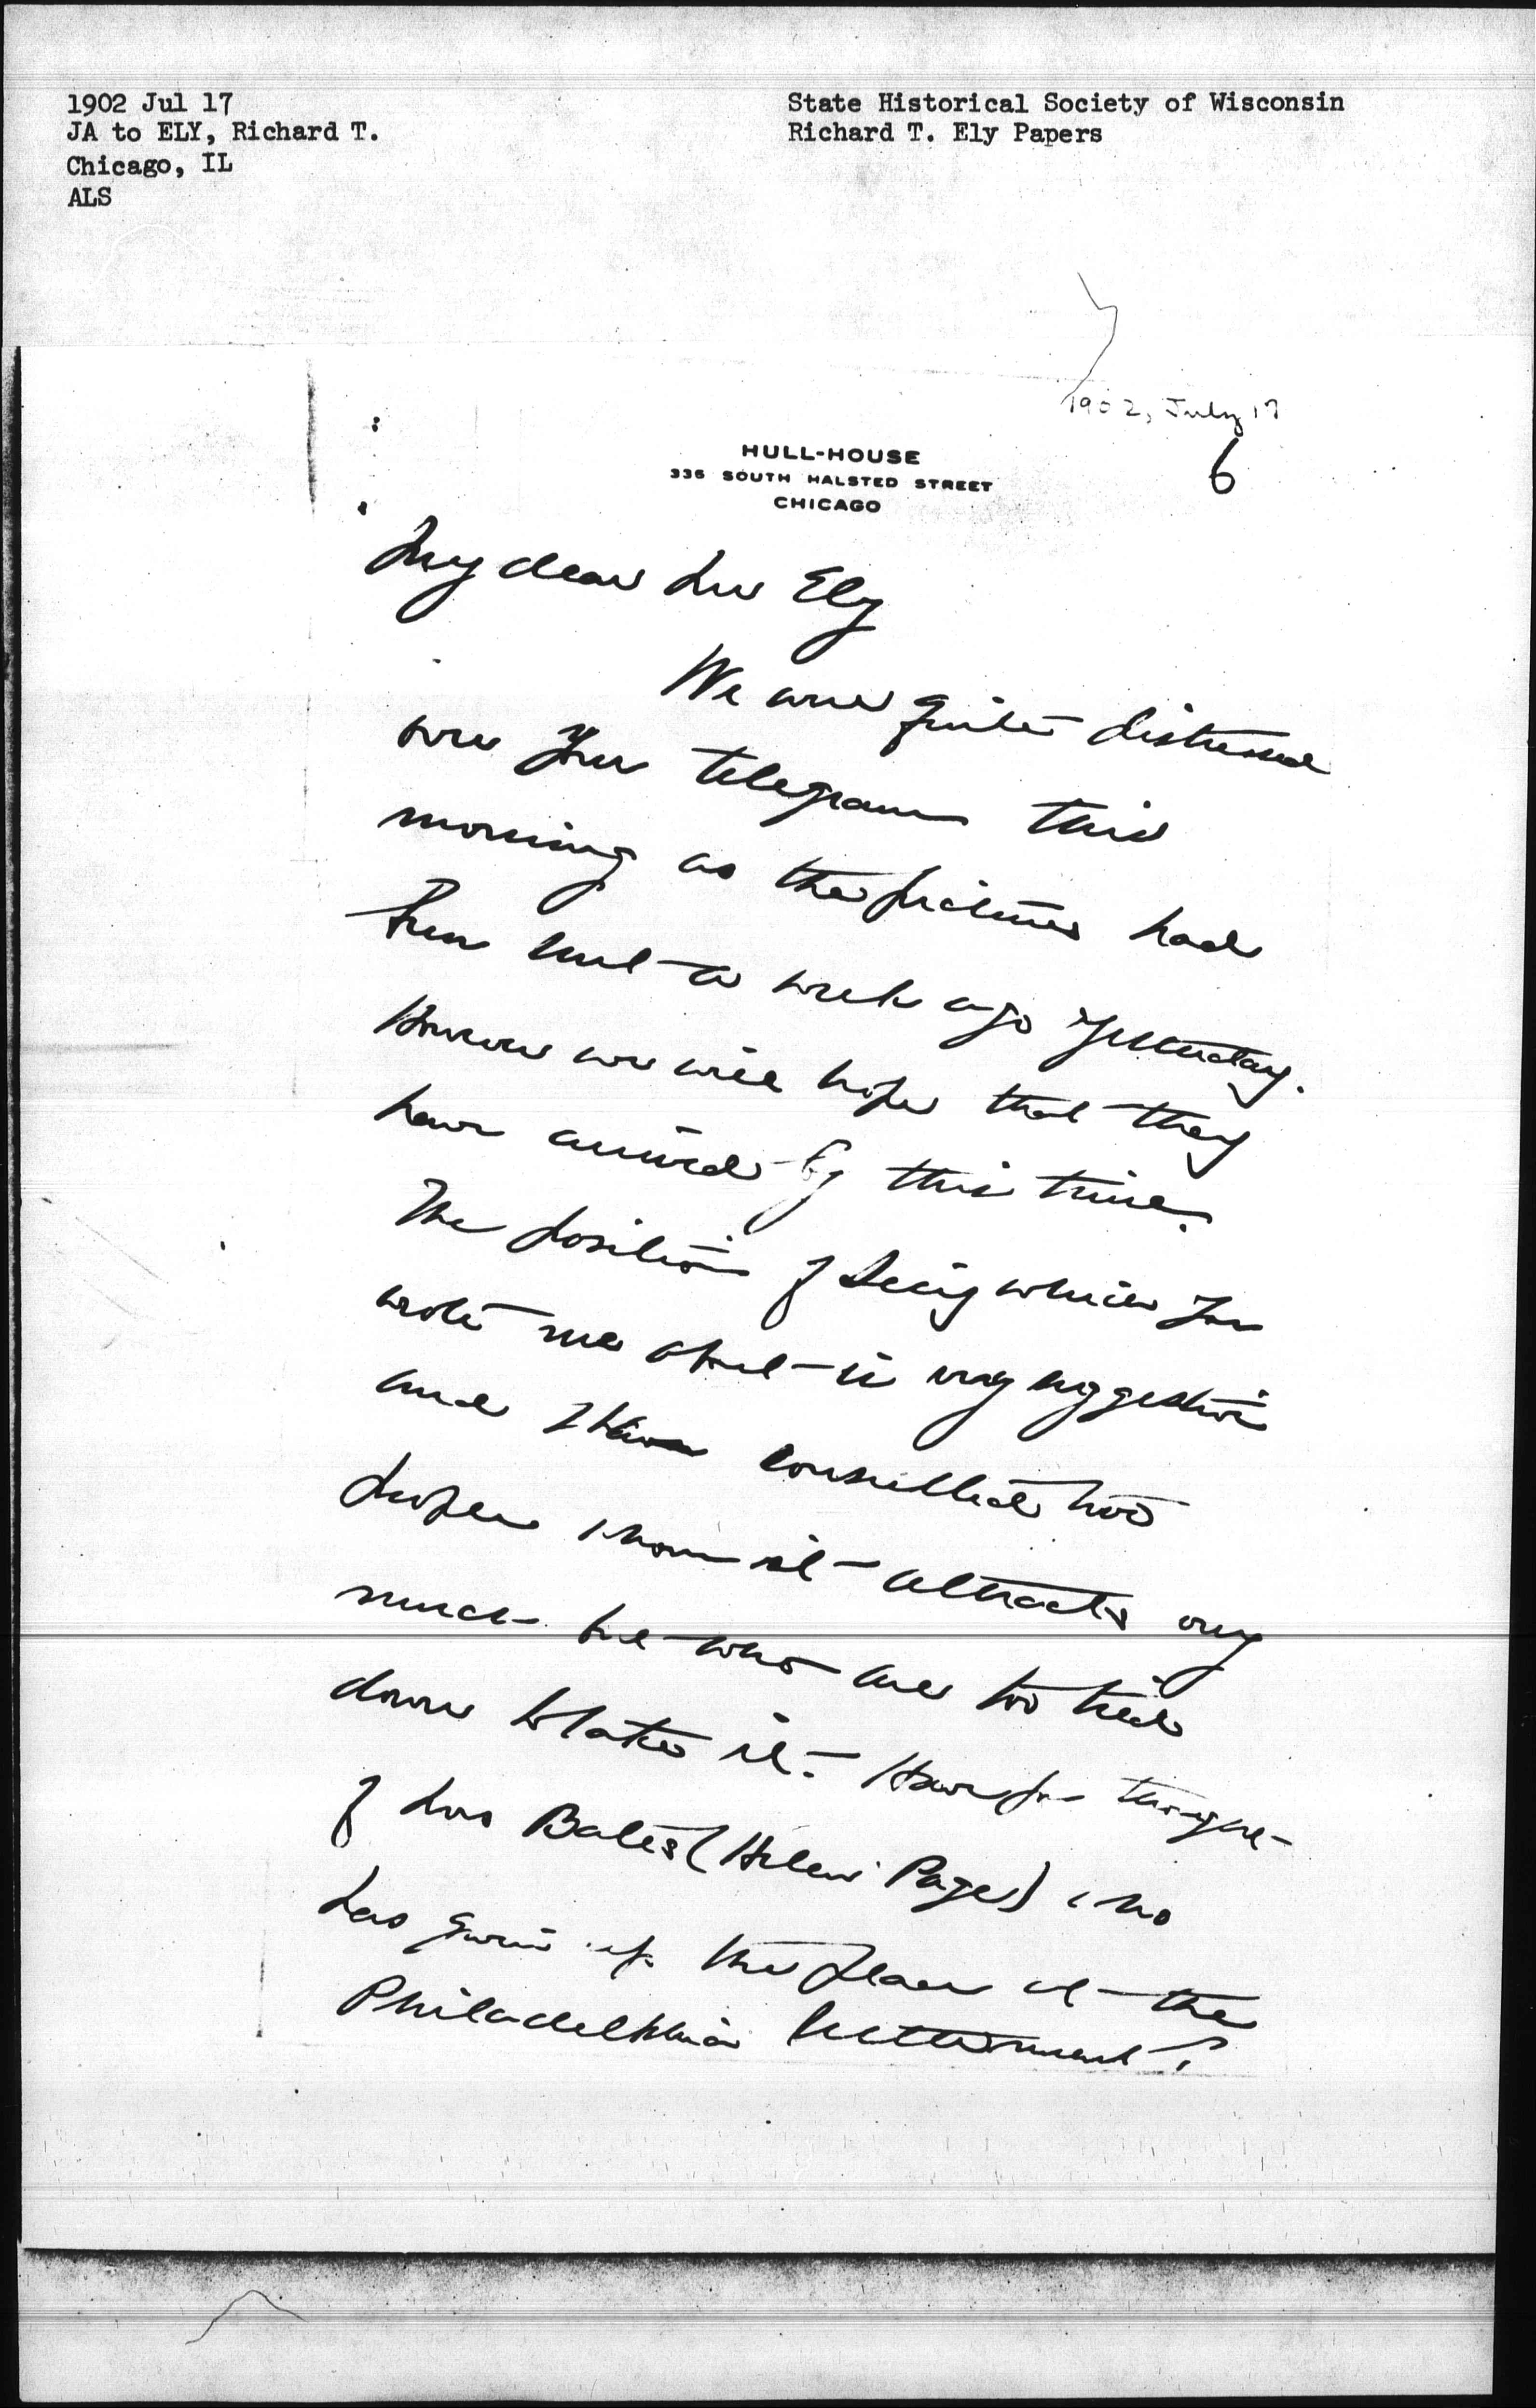 1902 Jul 17
JA to ELY, Richard T.
Chicago, IL
ALS
State Historical Society of Wisconsin
Richard T. Ely Papers
1902, July 17
6
HULL-HOUSE
335 SOUTH HALSTED STREET
CHICAGO
My dear Mr Ely
We were quite distressed
over your telegram this
morning as the pictures had
been sent a week ago yesterday.
However we will hope that they
have arrived by this time.
The position of being which you
wrote me about is very suggestive
and I have consulted two
people whom it attracts very
much but who are too tied
down to take it. Have you thought
of Mrs Bates (Helen Page) who
has given up the place at the
Philadelphia Settlement?